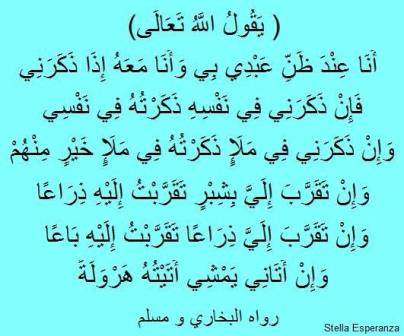 ( يَقُولُ اللَّهُ تَعَالَى)
أَنَا عِنْدَ ظَنِّ عَبْدِي بِي وَأَنَا مَعَهُ إِذَا ذَكَرَنِي
فَإِنْ ذَكَرَنِي فِي نَفْسِهِ ذَكَرْتُهُ فِي نَفْسِي
وَإِنْ ذَكَرَنِي فِي مَلَإٍ ذَكَرْتُهُ فِي مَلَإٍ خَيْرٍ مِنْهُمْ
وَإِنْ تَقَرَّبَ إِلَيَّ بِشِبْرٍ تَقَرَّبْتُ إِلَيْهِ ذِرَاعًا
وَإِنْ تَقَرَّبَ إِلَيَّ ذِرَاعًا تَقَرَّبْتُ إِلَيْهِ بَاعًا
وَإِنْ أَتَانِي يَمْشِي أَتَيْتُهُ هَرْوَلَةً
رواه البخاري و مسلم
Stella Esperanza